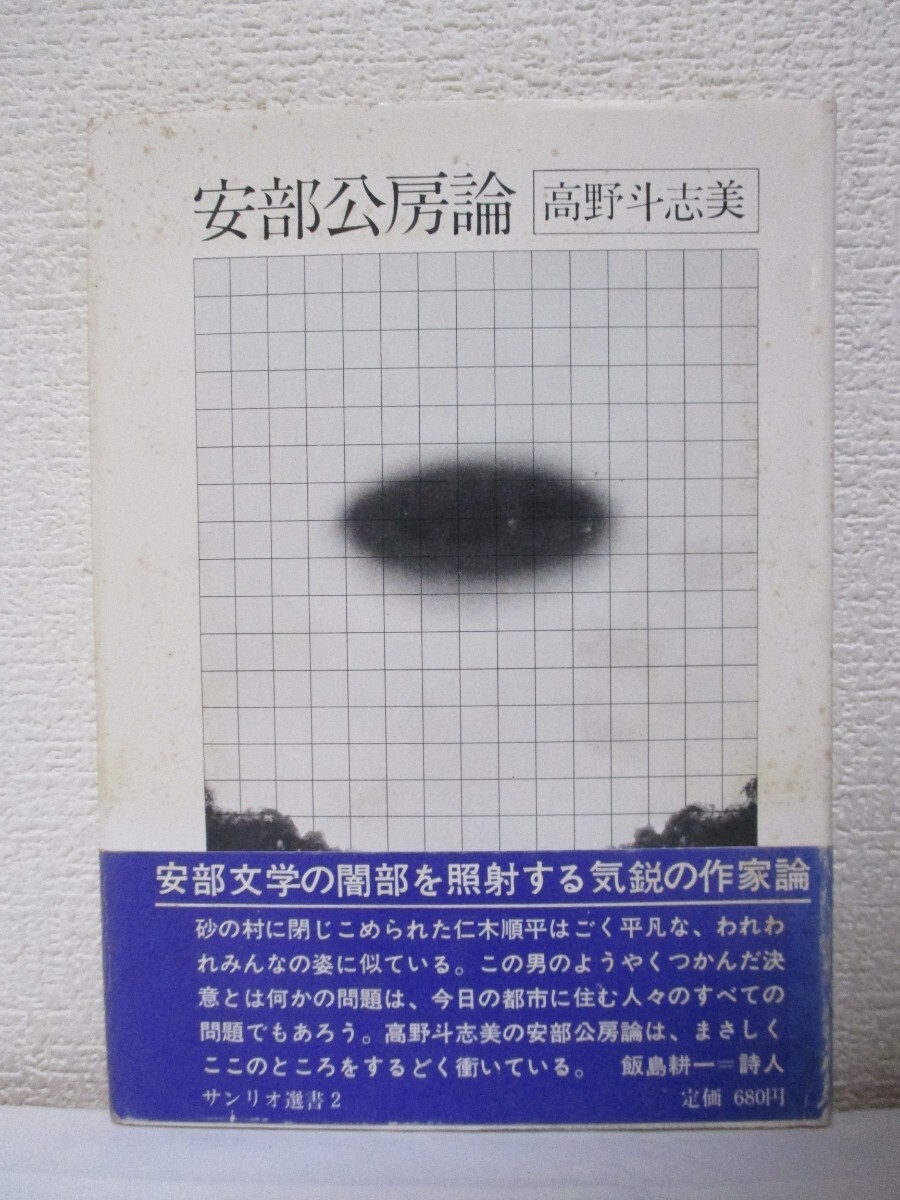 安部公房論 高野斗志美
安部文学の闇部を照射する気鋭の作家論
砂の村に閉じこめられた仁木順平はごく平凡な、われわ
れみんなの姿に似ている。この男のようやくつかんだ決
意とは何かの問題は、今日の都市に住む人々のすべての
問題でもあろう。高野斗志美の安部公房論は、まさしく
ここのところをするどく衝いている。 飯島耕一＝詩人
サンリオ選書2 定価 680円